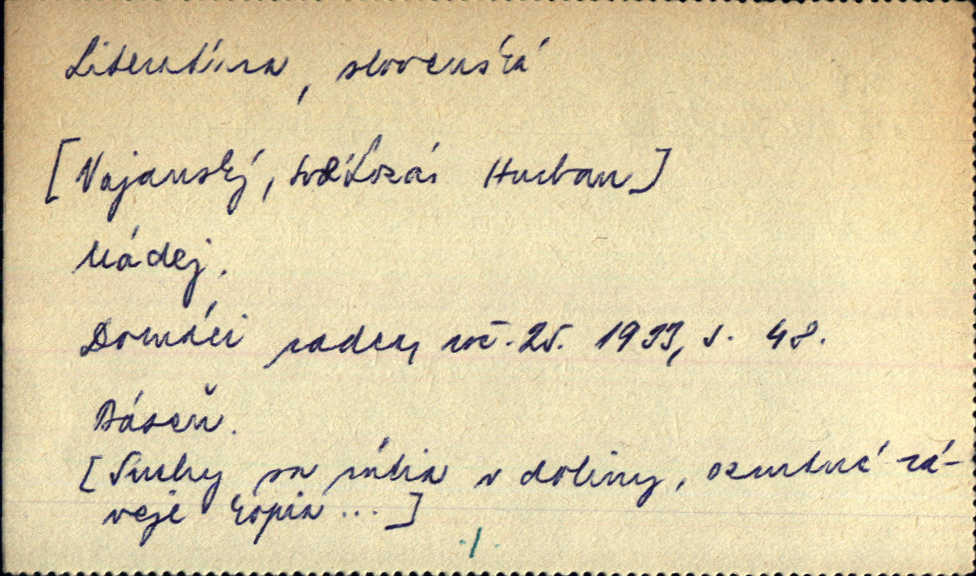 Literatúra, slovenská
[Vajanský, Svetozár Hurban]
Nádej.
Domáci radca, roč. 25. 1933, s. 48.
Báseň.
[Snehy sa rútia v doliny, ozrutné zá-
veje kopia ...]
./.